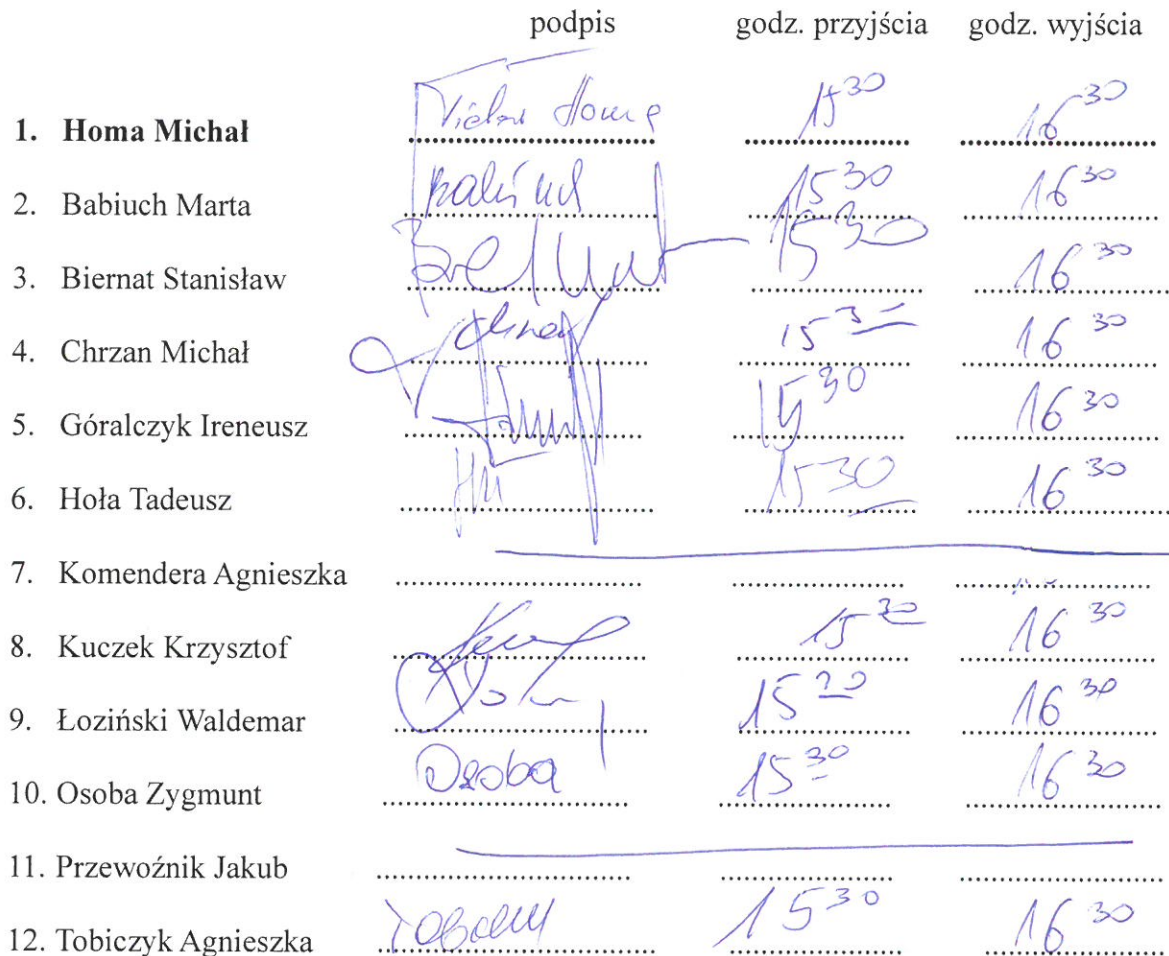 podpis godz. przyjścia godz. wyjścia
1. Homa Michał 15 30 16 30
2. Babiuch Marta 15 30 16 30
3. Biernat Stanisław 15 30 16 30
4. Chrzan Michał 15 3 16 30
5. Góralczyk Ireneusz 15 30 16 30
6. Hoła Tadeusz 15 30 16 30
7. Komendera Agnieszka
8. Kuczek Krzysztof 15 30 16 30
9. Łoziński Waldemar 15 20 16 30
10. Osoba Zygmunt Osoba 15 30 16 30
11. Przewoźnik Jakub
12. Tobiczyk Agnieszka 15 30 16 30